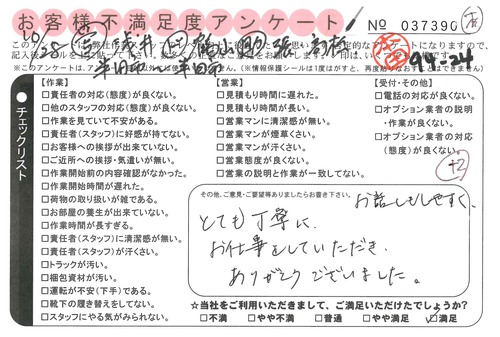 お客様不満足度アンケート
No 037390
99-24
+2
チェックリスト
【作業】
□責任者の対応(態度)が良くない。
□他のスタッフの対応(態度)が良くない。
□作業を見ていて不安がある。
□責任者(スタッフ)に好感が持てない。
□お客様への挨拶が出来ていない。
□ご近所への挨拶・気遣いが無い。
□作業開始前の内容確認がなかった。
□作業開始時間が遅れた。
□荷物の取り扱いが雑である。
□お部屋の養生が出来ていない。
□作業時間が長すぎる。
□責任者(スタッフ)に清潔感が無い。
□責任者(スタッフ)が汗くさい。
□トラックが汚い。
□梱包資材が汚い。
□運転が不安(下手)である。
□靴下の履き替えをしてない。
□スタッフにやる気がみられない。
【営業】
□見積もり時間に遅れた。
□見積もり時間が長い。
□営業マンに清潔感が無い。
□営業マンが煙草くさい。
□営業マンが汗くさい。
□営業態度が良くない。
□営業の説明と作業が一致してない。
【受付・その他】
□電話の対応が良くない。
□オプション業者の説明
・作業が良くない。
□オプション業者の対応
(態度)が良くない。
その他、ご意見・ご要望等ありましたらお書き下さい。
お話しもしやすく、
とても丁寧に
お仕事をしていただき
ありがとうございました。
☆当社をご利用いただきまして、ご満足いただけたでしょうか?
□不満 □やや不満 □普通 □やや満足 ☑満足